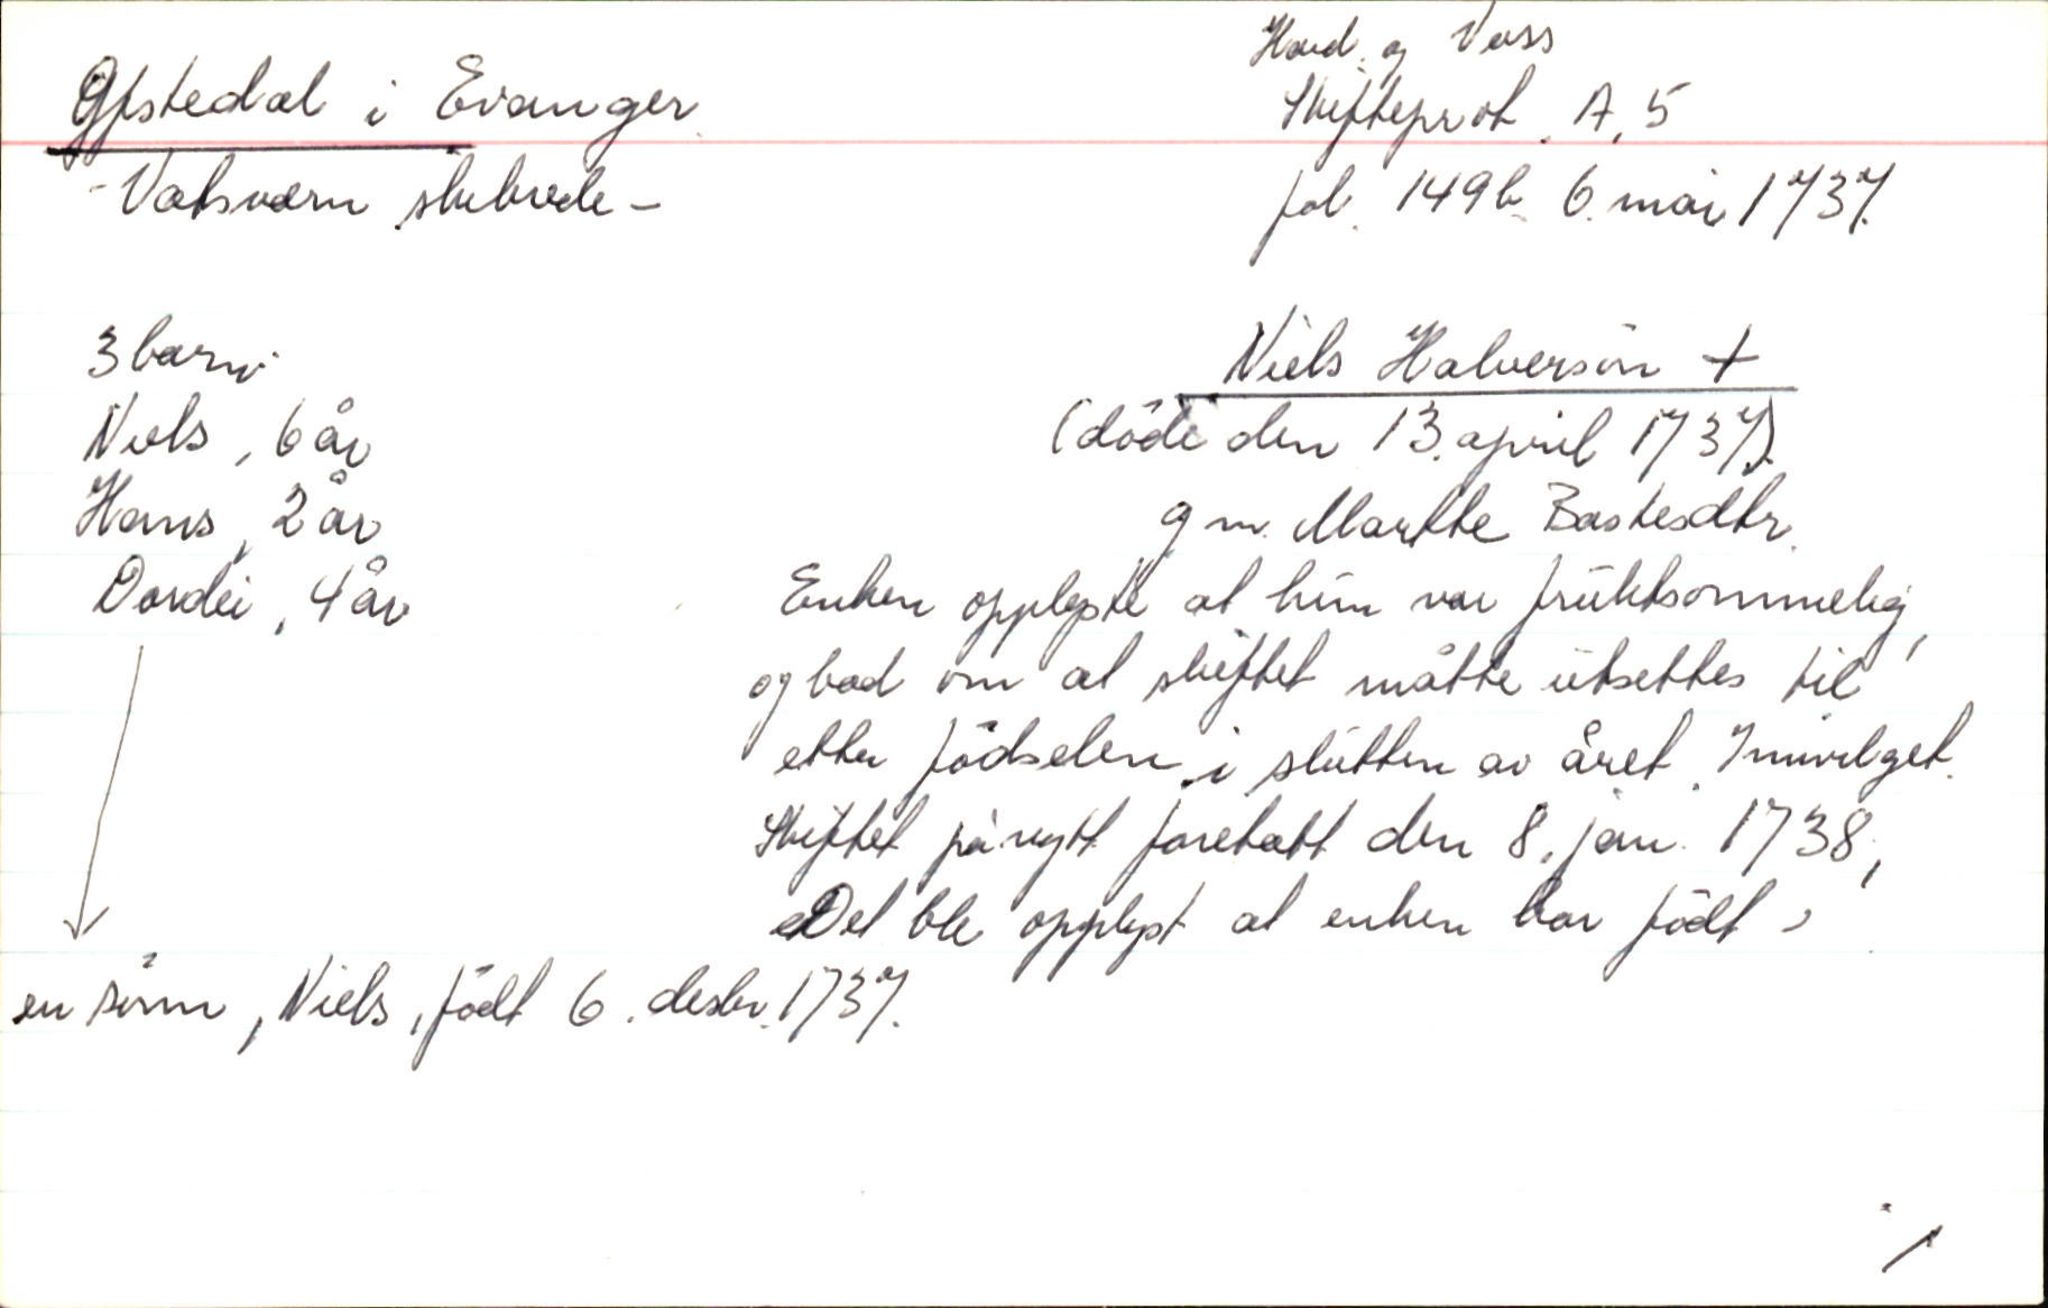 Gfstedal i Evanger
- Vatsværn skibrede -
Hard. og Voss
Skifteprot. A, 5
fol. 149b 6. mai 1737.
3 barn:
Niels, 6 år
Hans, 2 år
Dordei, 4 år
Niels Halversön +
(döde den 13. april 1737).
g m. Marthe Bastesdtr.
Enken opplyste at hun var fruktsommelig,
og bad om at skiftet måtte utsettes til
etter födselen i slutten av året. Innvilget.
Skiftet på nytt foretatt den 8. jan. 1738,
Det ble opplyst at enken har födt
en sönn, Niels, födt 6. desbr. 1737.